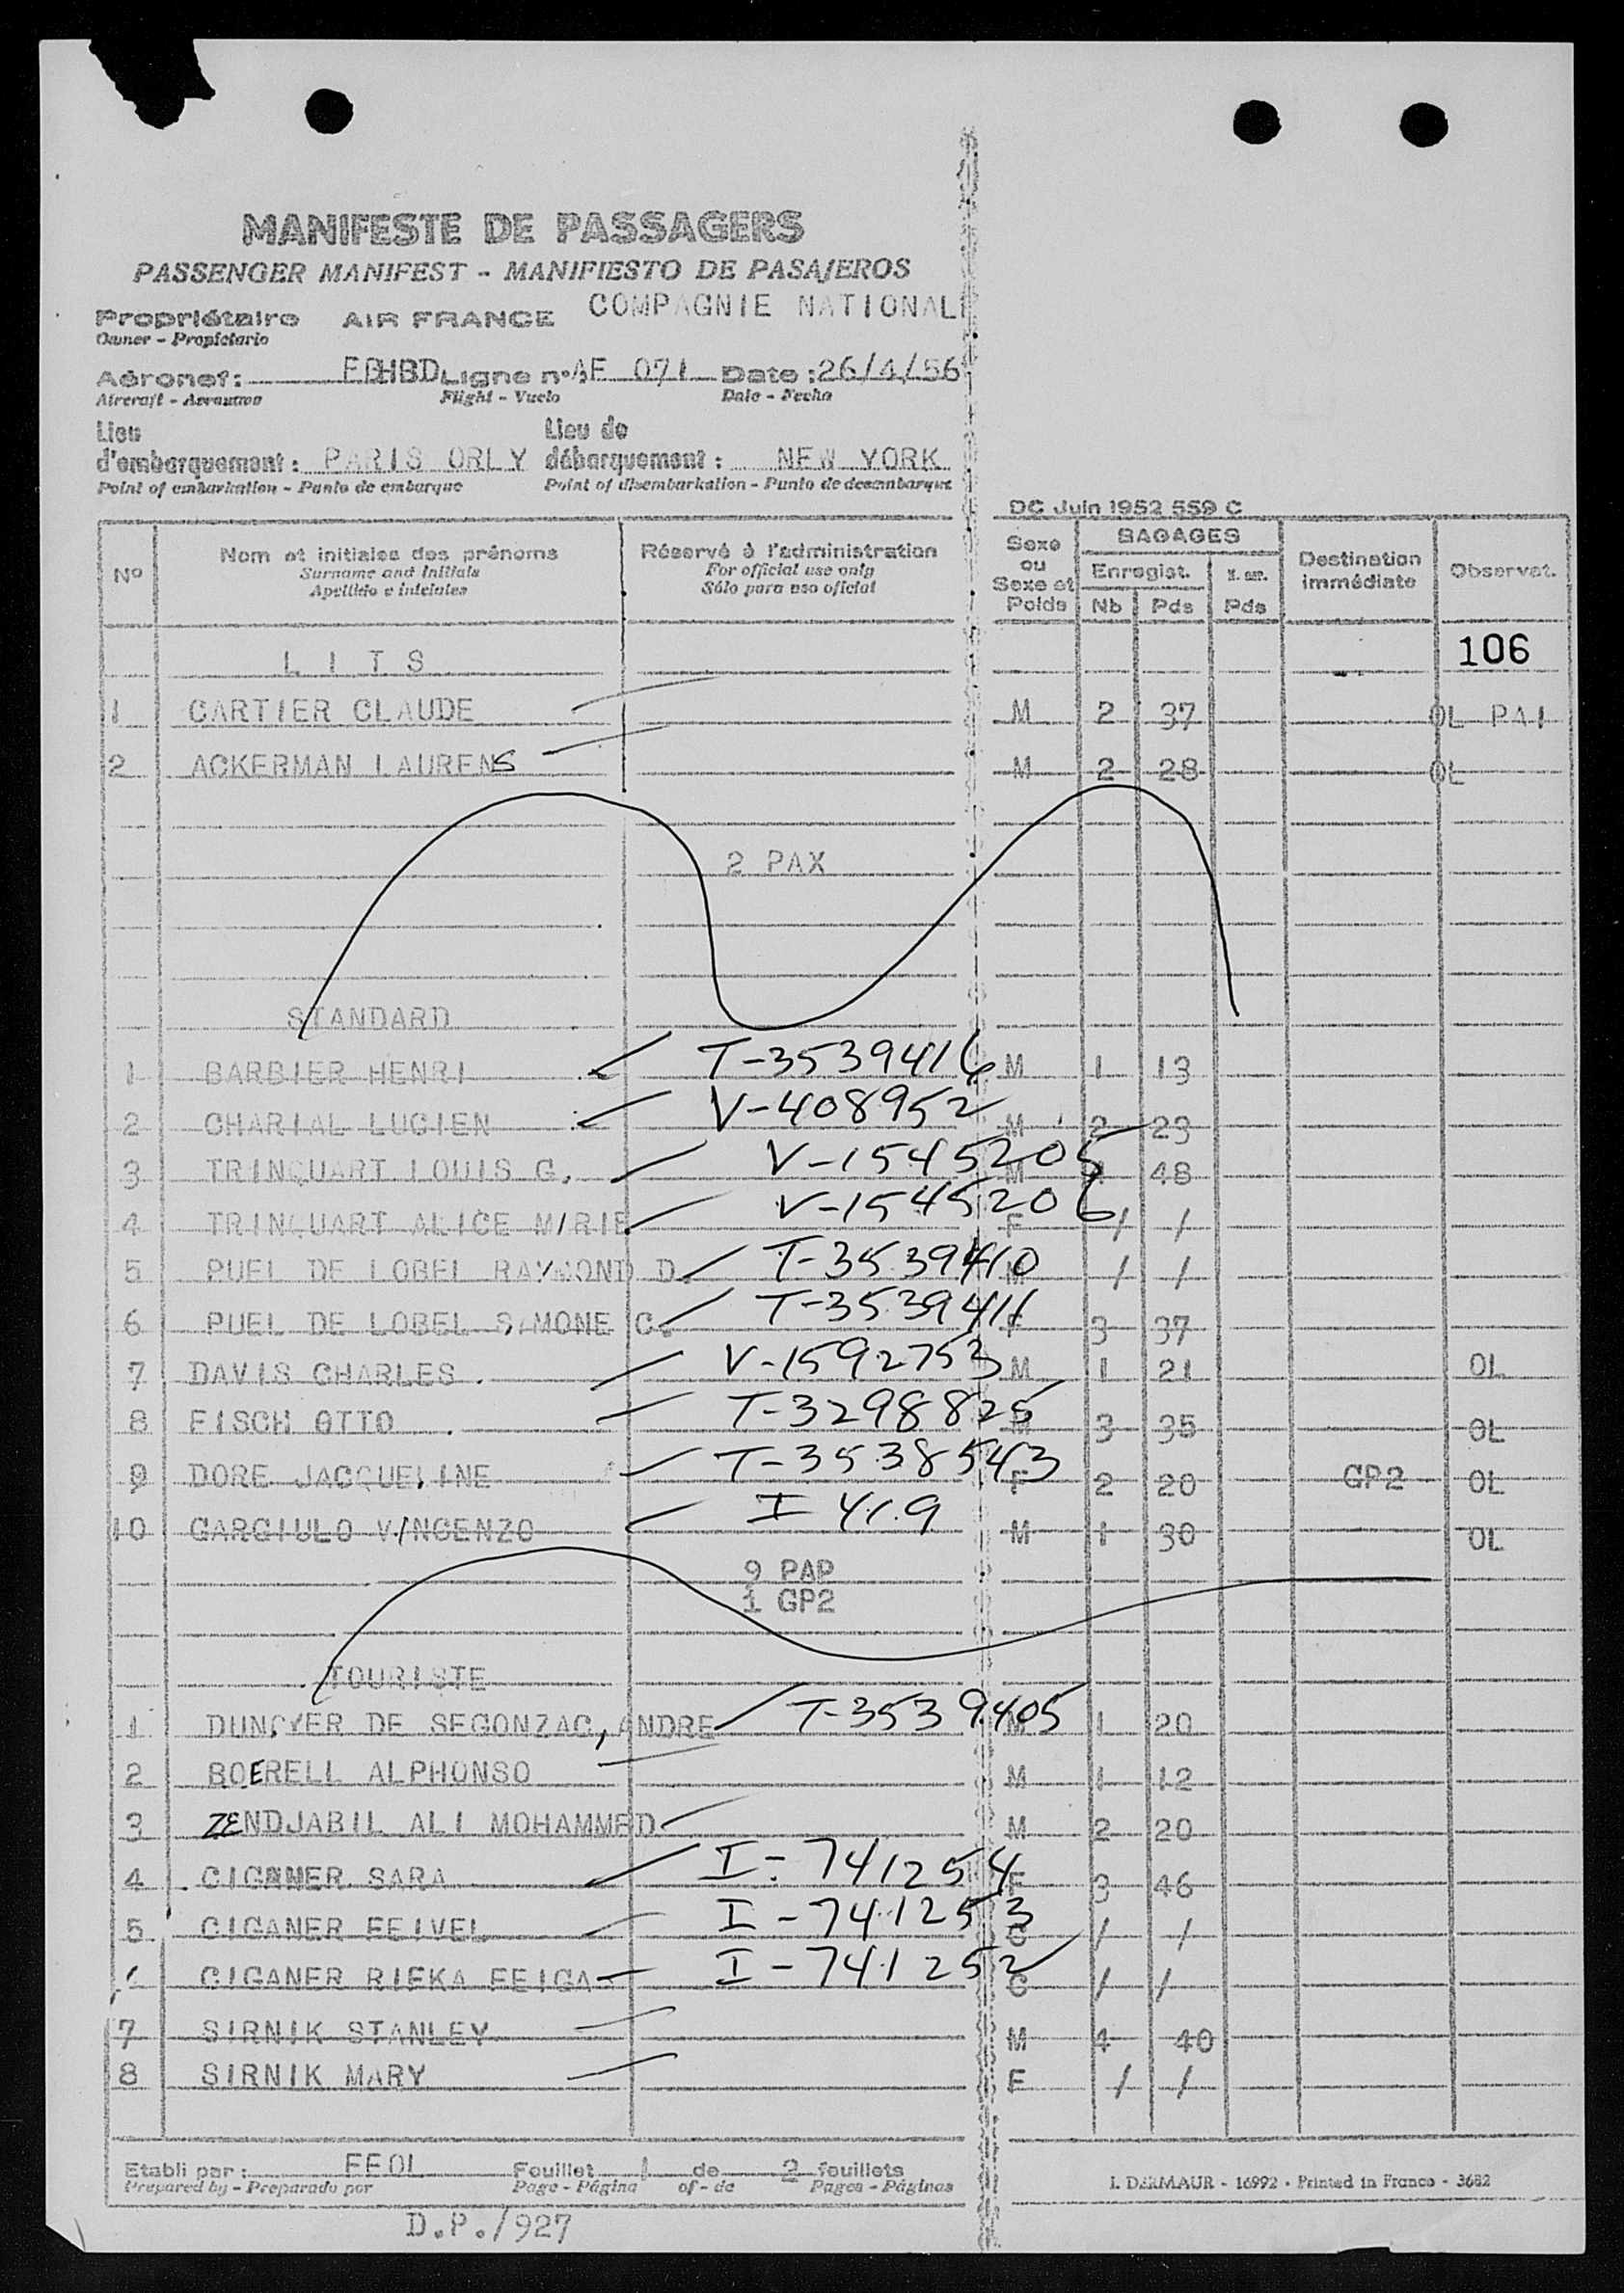 MANIFESTE DE PASSAGERS
PASSENGER MANIFEST - MANIFIESTO DE PASAJEROS
Propriétaire AIR FRANCE COMPAGNIE NATIONALE
Owner - Propietario
Aéronef: FBHBD Ligne n° AF 071 Date : 26/4/56
Aircraft - Aeronave Flight - Vuelo Date - Fecha
Lieu d'embarquement : PARIS ORLY Lieu de débarquement : NEW YORK
Point of embarkation - Punto de embarque Point of disembarkation - Punto de desembarque
DC Juin 1952 559 C
N° Nom et initiales des prénoms Réservé à l'administration Sexe ou Sexe et Poids BAGAGES Destination immédiate Observat.
Surname and initials For official use only Enregist.
Apellido e iniciales Sólo para uso oficial Nb Pds Pds
LITS 106
1 CARTIER CLAUDE M 2 37 OL PAI
2 ACKERMAN LAURENS M 2 28 OL
2 PAX
STANDARD
1 BARBIER HENRI T-3539416 M 1 13
2 CHARIAL LUCIEN V-408952 M 2 23
3 TRINQUART LOUIS G. V-1545205 M 48
4 TRINQUART ALICE MARIE V-1545206 F / /
5 PUEL DE LOBEL RAYMOND D. T-3539410 M / /
6 PUEL DE LOBEL SIMONE C. T-3539411 F 3 37
7 DAVIS CHARLES . V-1592753 M 1 21 OL
8 FISCH OTTO . T-3298825 M 3 35 OL
9 DORE JACQUELINE T-3538543 F 2 20 GP2 OL
10 GARGIULO VINCENZO I 419 M 1 30 OL
9 PAP
1 GP2
TOURISTE
1 DUNOYER DE SEGONZAC, ANDRE T-3539405 M 1 20
2 BOERELL ALPHONSO M 1 12
3 ZENDJABIL ALI MOHAMMED M 2 20
4 CIGANER SARA I-741254 F 3 46
5 CIGANER FEIVEL I-741253 C / /
6 CIGANER RIFKA FEIGA I-741252 C / /
7 SIRNIK STANLEY M 4 40
8 SIRNIK MARY F / /
Etabli par : FEOL Feuillet 1 de 2 feuillets
Prepared by - Preparado por Page - Página of - de Pages - Páginas
I. DERMAUR - 16992 - Printed in France - 3682
D.P./927